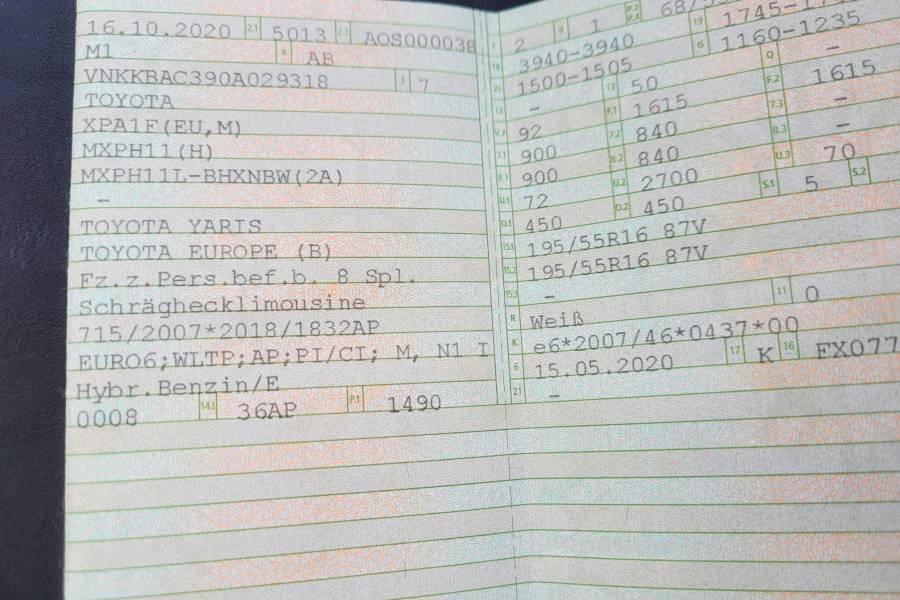 16.10.2020 2.1 5013 2.2 AOS000038
M1 4 AB
VNKKBAC390A029318 3 7
TOYOTA
XPA1F(EU,M)
MXPH11(H)
MXPH11L-BHXNBW(2A)
–
TOYOTA YARIS
TOYOTA EUROPE (B)
Fz.z.Pers.bef.b. 8 Spl.
Schräghecklimousine
715/2007*2018/1832AP
EURO6;WLTP;AP;PI/CI; M, N1 I
Hybr.Benzin/E
0008 14.1 36AP P.1 1490
L 2 9 1 P.2 P.4 68/
18 3940-3940 19 1745-
20 1500-1505 G 1160-1235
12 – 13 50 Q –
V.7 92 F.1 1615 F.2 1615
7.1 900 7.2 840 7.3 –
8.1 900 8.2 840 8.3 –
U.1 72 U.2 2700 U.3 70
O.1 450 O.2 450 S.1 5 S.2
15.1 195/55R16 87V
15.2 195/55R16 87V
15.3 –
R Weiß 11 0
K e6*2007/46*0437*00
6 15.05.2020 17 K 16 FX077
21 –